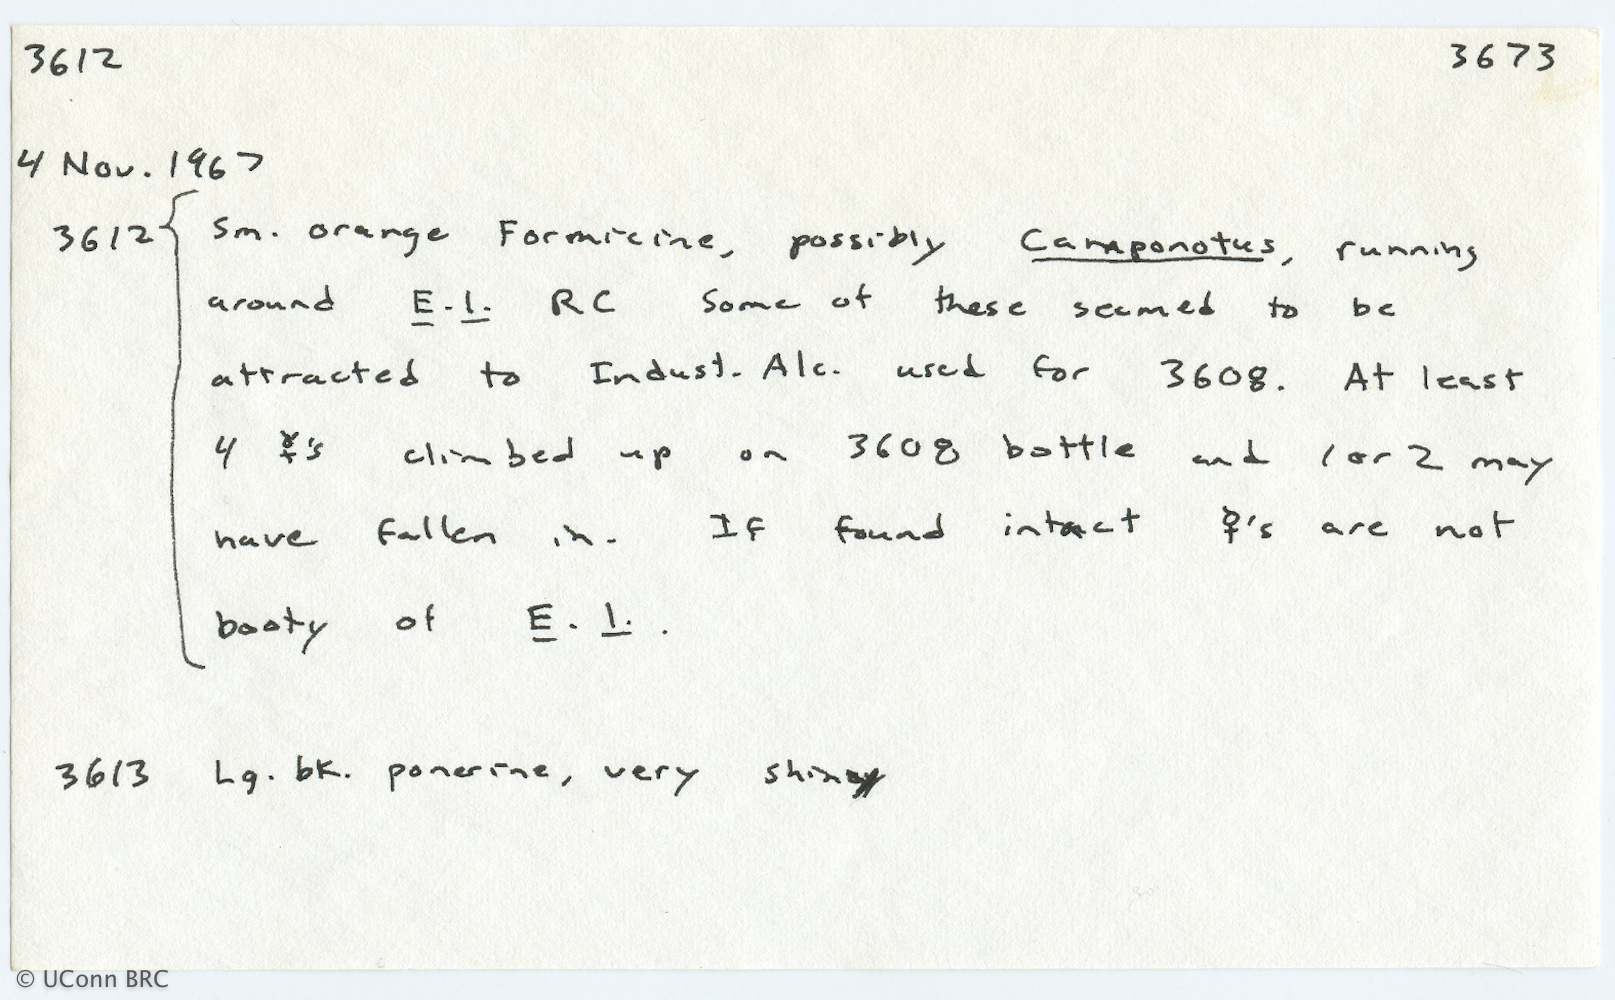 3612 3673
4 Nov. 1967
3612 Sm. orange Formicine, possibly Camponotus, running
around E. l. RC Some of these seemed to be
attracted to Indust. Alc. used for 3608. At least
4 ☿'s climbed up on 3608 bottle and 1 or 2 may
have fallen in. If found intact ☿'s are not
booty of E. l.
3613 Lg. bk. ponerine, very shiny
© UConn BRC